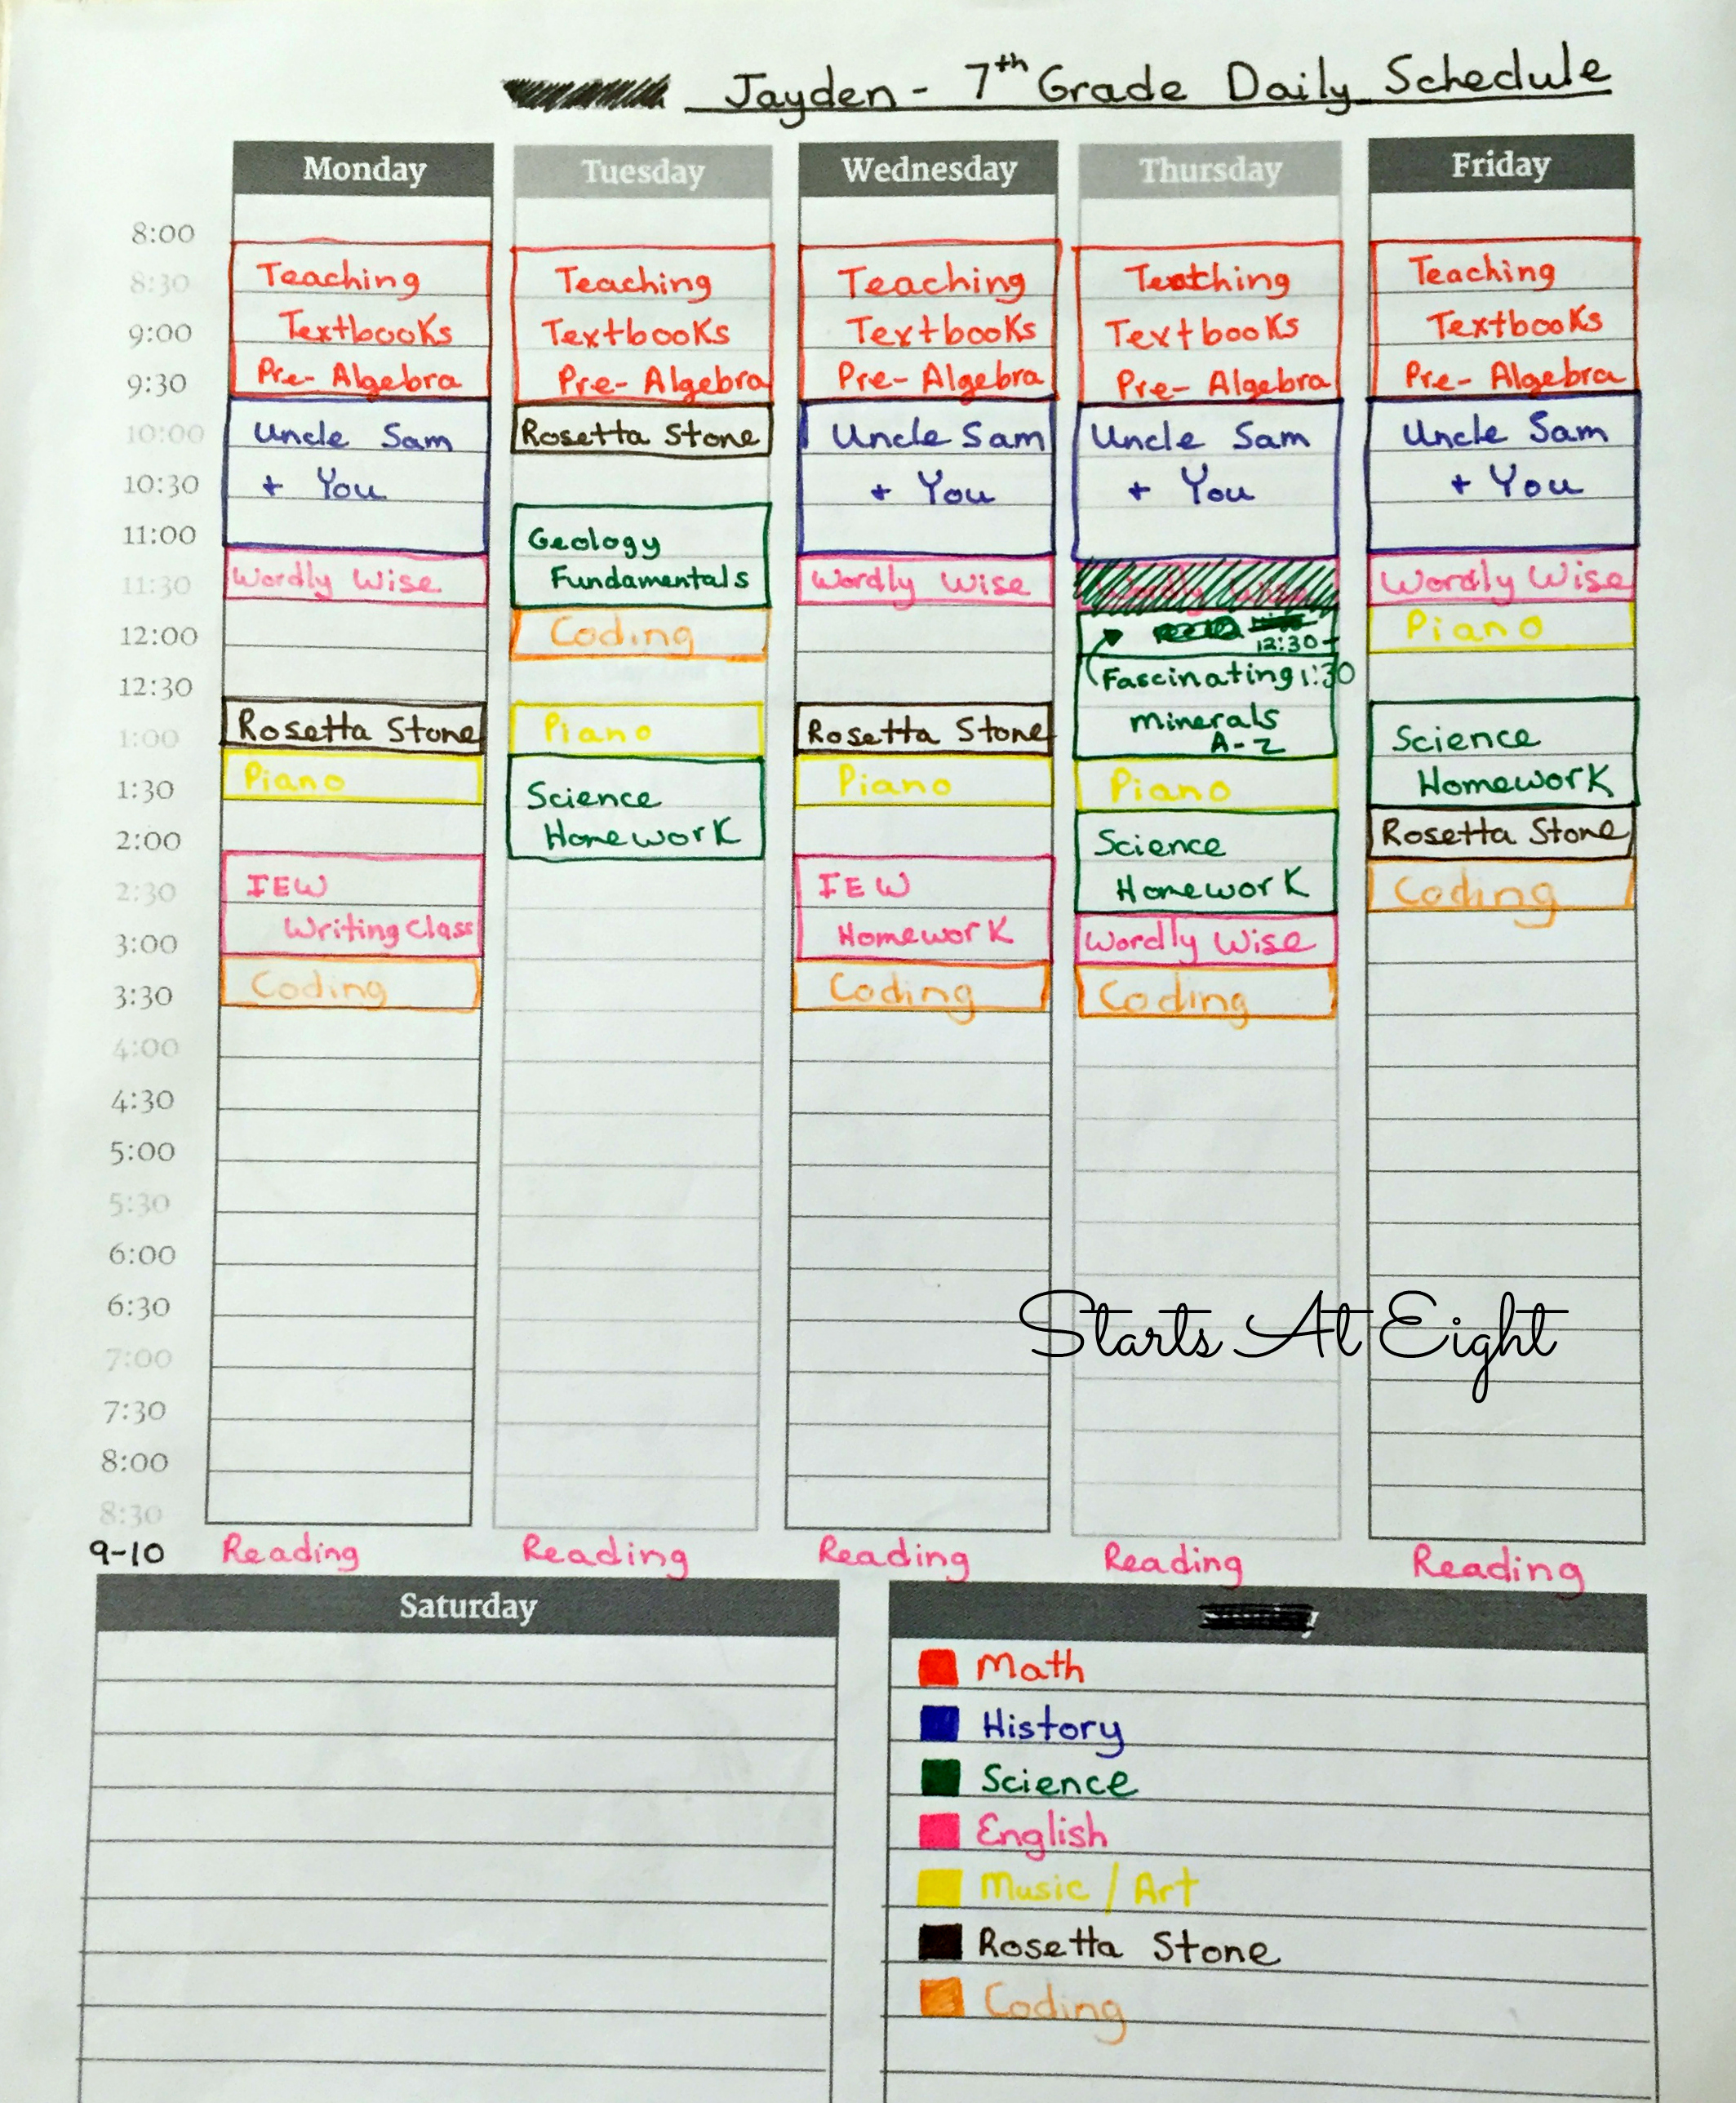 Jayden - 7th Grade Daily Schedule
Monday Tuesday Wednesday Thursday Friday
8:00
8:30 Teaching Teaching Teaching Teaching Teaching
9:00 Textbooks Textbooks Textbooks Textbooks Textbooks
9:30 Pre-Algebra Pre-Algebra Pre-Algebra Pre-Algebra Pre-Algebra
10:00 Uncle Sam Rosetta Stone Uncle Sam Uncle Sam Uncle Sam
10:30 + You + You + You + You
11:00 Geology
11:30 Wordly Wise Fundamentals Wordly Wise Wordly Wise
12:00 Coding 12:30- Piano
12:30 Fascinating 1:30
1:00 Rosetta Stone Piano Rosetta Stone Minerals Science
A-Z
1:30 Piano Science Piano Piano Homework
2:00 Homework Science Rosetta Stone
2:30 IEW IEW Homework Coding
3:00 Writing Class Homework Wordly Wise
3:30 Coding Coding Coding
4:00
4:30
5:00
5:30
6:00
6:30
Starts At Eight
7:00
7:30
8:00
8:30
9-10 Reading Reading Reading Reading Reading
Saturday
Math
History
Science
English
Music / Art
Rosetta Stone
Coding